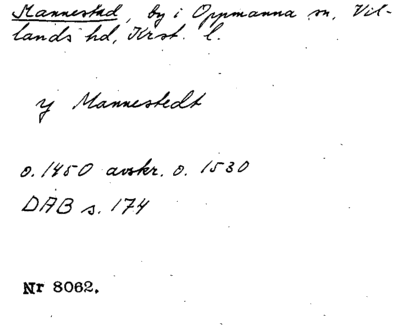 Mannestad, by i Oppmanna sn, Vil-
lands hd, Krst. l.
y Mannestedt
o. 1450 avskr. o. 1530
DAB s. 174
Nr 8062.